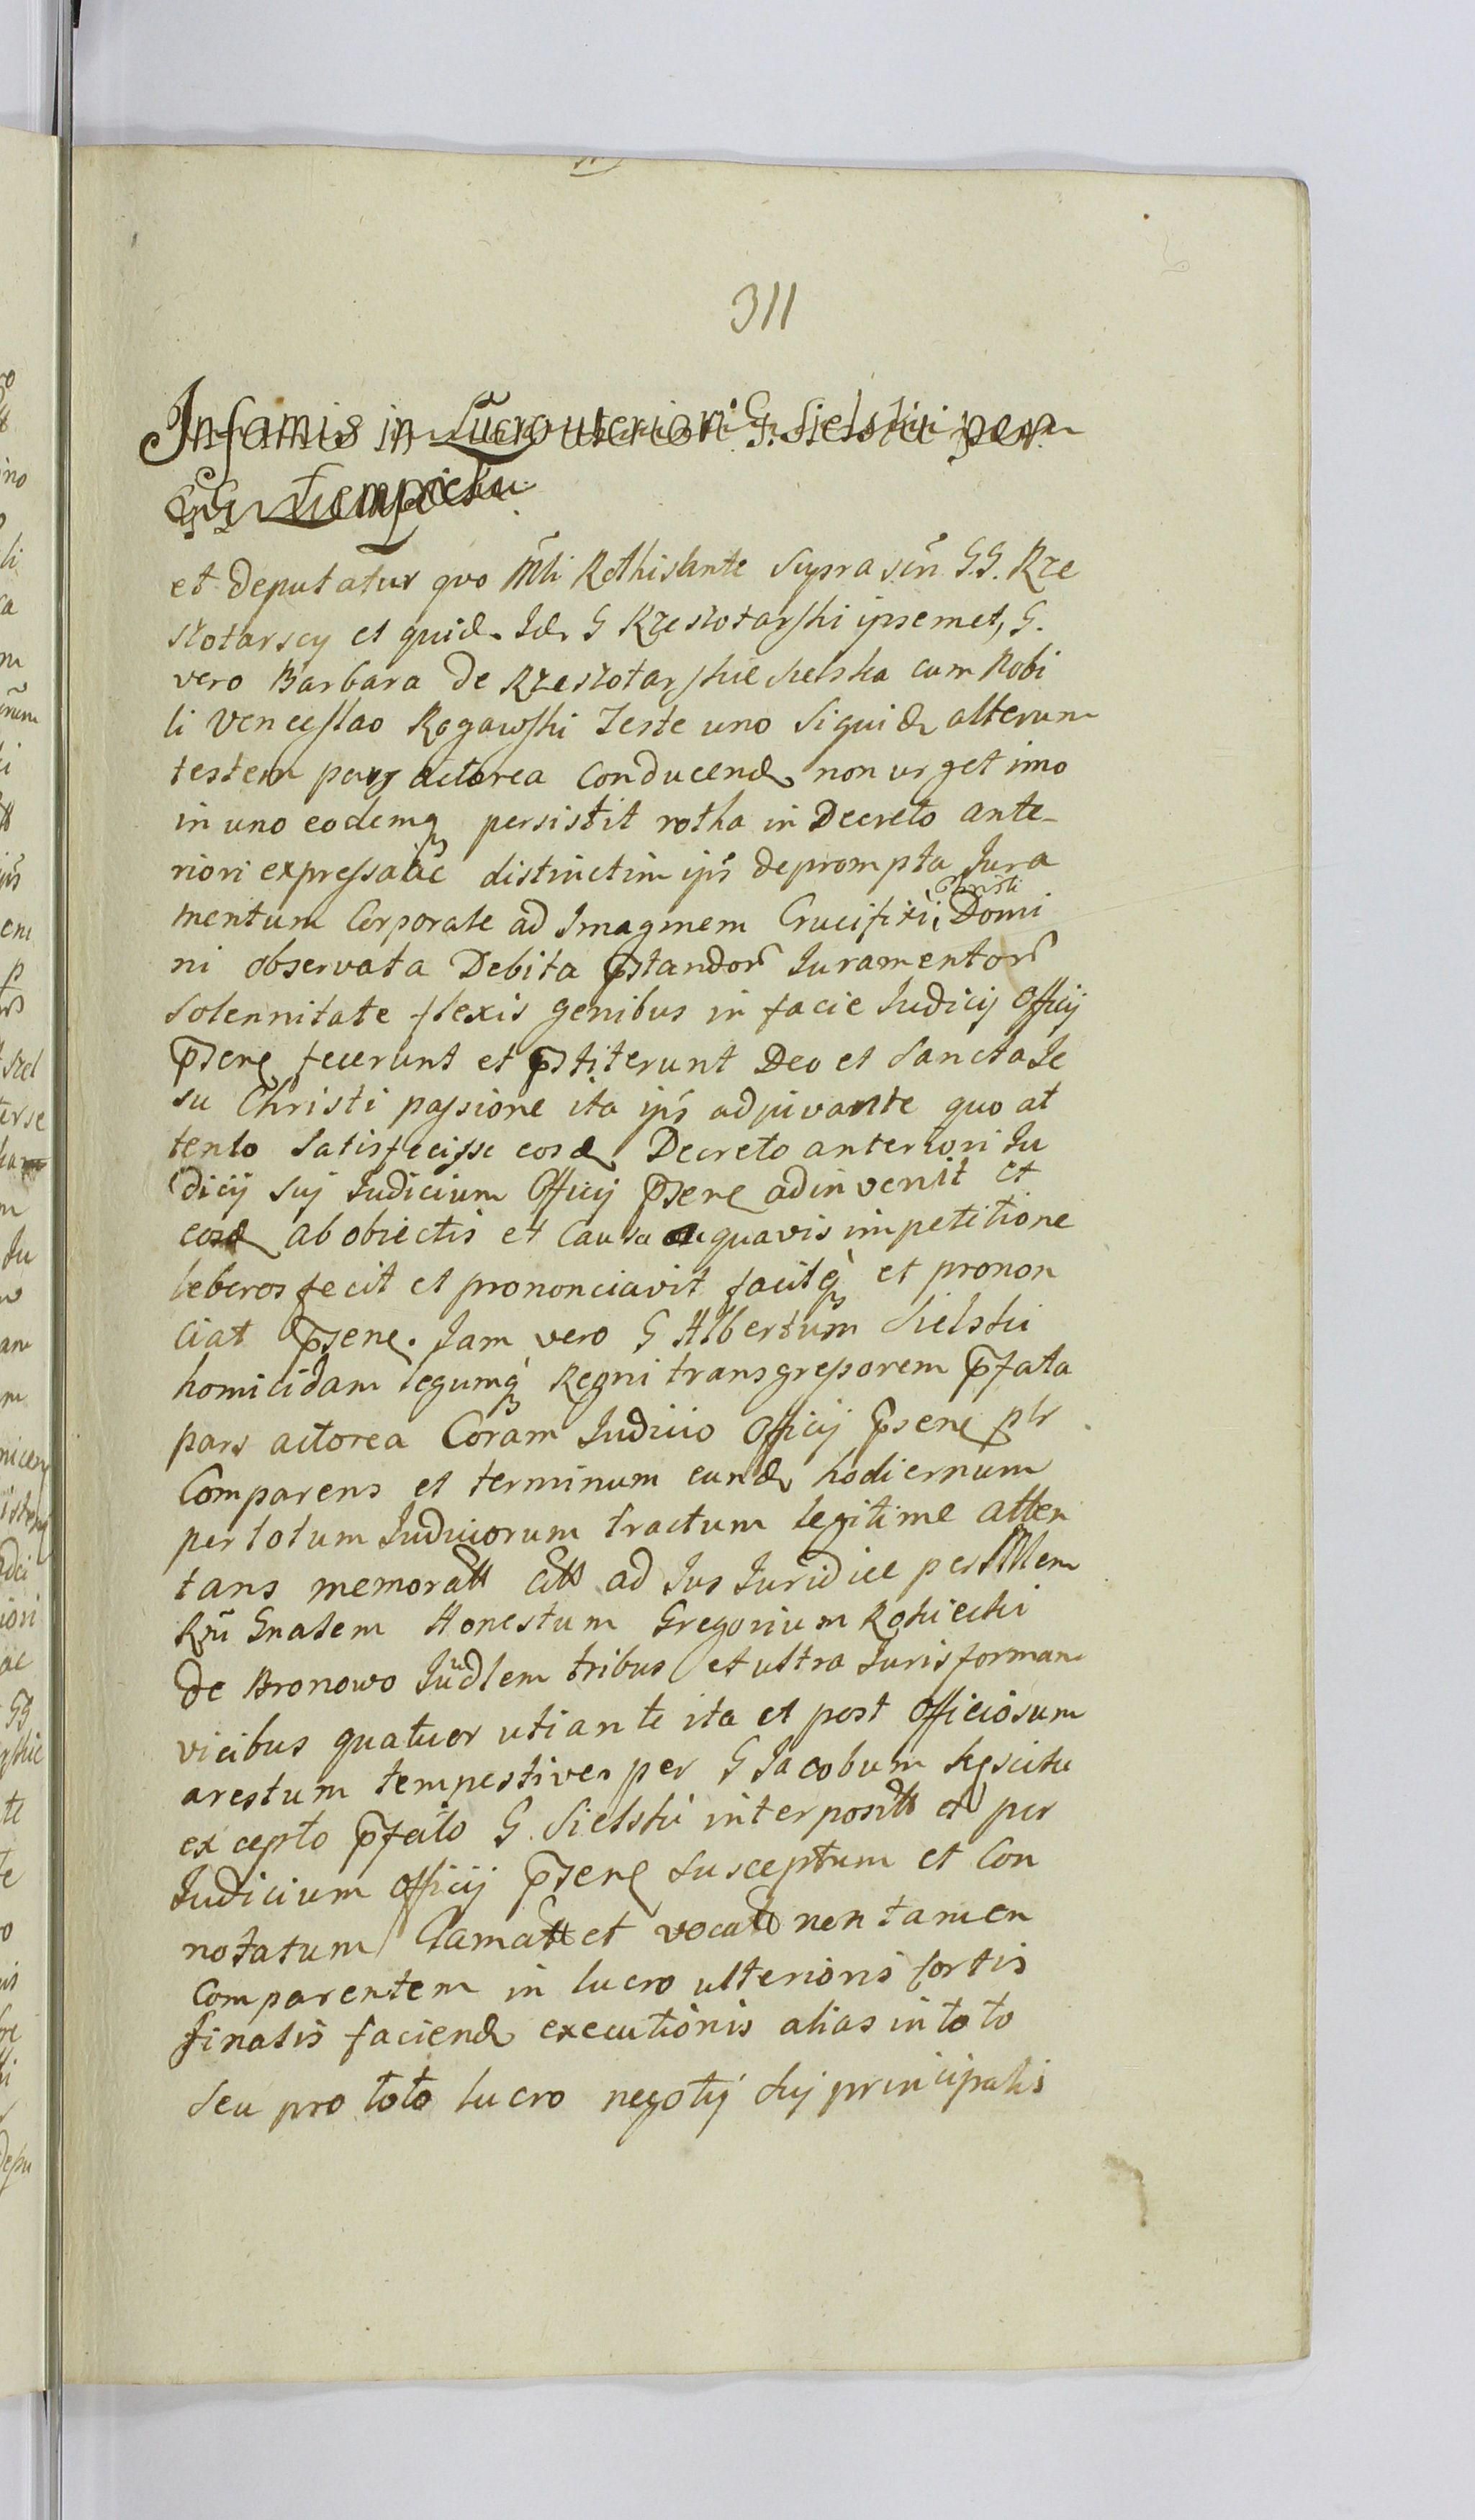 311
Infamis in Lucro ulteriori G. Sielski per
GG
et deputatur quo Mti Rothisante supra scń G.G. Rze
szotarscy et quid. Id. G Rzeszotarski ipsemet, G.
vero Barbara de Rzeszotarskie Sielska cum Nobi
li Venceslao Rogawski Teste uno siquid alterum
testem pars actorea conducend non urget imo
in uno eodemq persistit rotha in Decreto ante-
riori expressa ac distinctim ips deprompta Jura
mentum Corporale ad Imaginem Crucifixi Christi Domi
ni observata Debita pstandor Juramentor
solennitate flexis genibus in facie Judicij Officij
psene fecerunt et pstiterunt Deo et Sancta Je
su Christi passione ita ips adjuvante quo at
tento satisfecisse eosd Decreto anteriori Ju
dicij sui Judicium Officij psene adinvenit et
eosd ab obiectis et causa quavis impetitione
leberos fecit et prononciavit facitq et pronon
ciat psene. Jam vero G Albertum Sielski
homicidam legumq Regni transgressorem pfata
pars actorea Coram Judicio Officij psene ptr
Comparens et terminum eund hodiernum
per totum Judiciorum tractum legitime atten
tans memoratt citt ad Jus Juridice per Mlem
Rm Gnalem Honestum Gregorium Rokicki
de Bronowo Judlem tribus et ultra Juris forman
vicibus quatuor uti ante ita et post Officiosum
arestum tempestive per G Jacobum
excepto pfato G. Sielski interpositt et per
Judicium Officij psene susceptum et Con
notatum Clamatt et vocatt non tamen
Comparentem in lucro ulterioris fortis
finalis faciend executionis alias in toto
seu pro toto lucro negotij sui principalis